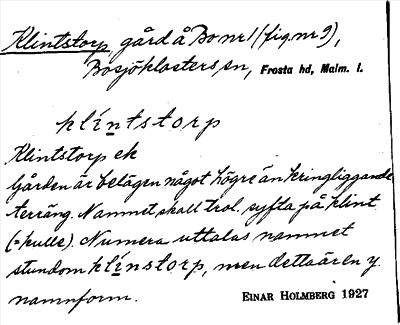 Klintstorp, gård å Bo nr 1 (fig. nr 9),
Bosjöklosters sn, Frosta hd, Malm. l.
klíntstorp
Klintstorp ek
Gården är belägen något högre än kringliggande
terräng. Namnet skall trol. syfta på klint
(= kulle). Numera uttalas namnet
stundom klínstorp, men detta är en y.
namnform. EINAR HOLMBERG 1927